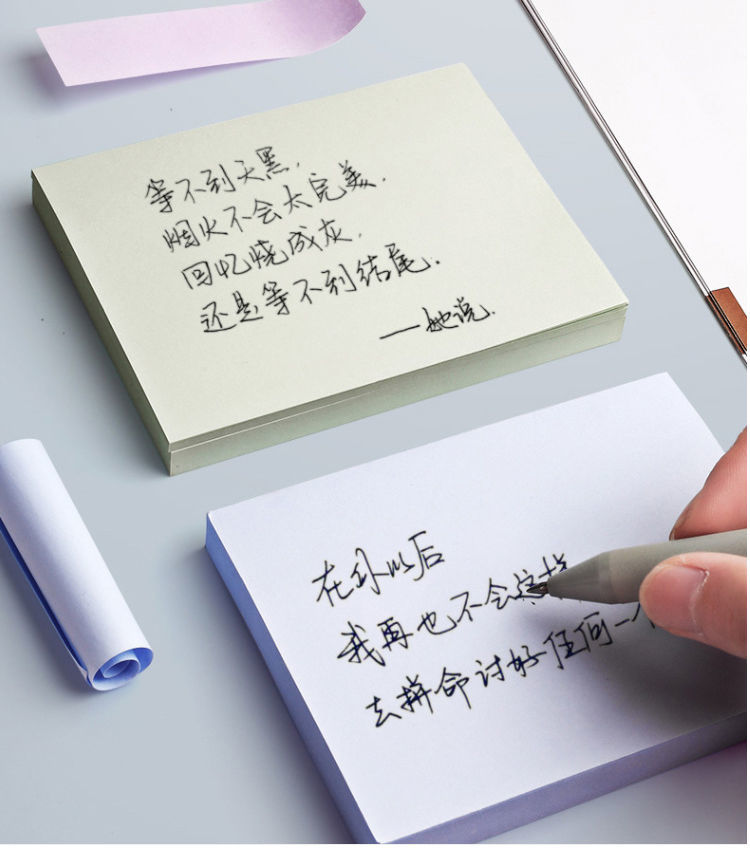 等不到天黑,
烟火不会太完美.
回忆烧成灰.
还是等不到结尾.
——她说.
在外以后
我再也不会这样
去拼命讨好任何一个